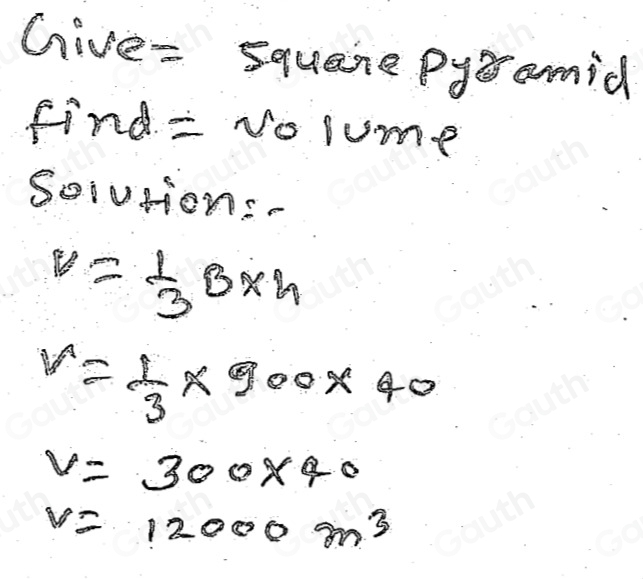 Give = square pyramid
find = volume
Solution:-
V = 1/3 B×h
V = 1/3 × 900 × 40
V = 300×40
V = 12000 m³